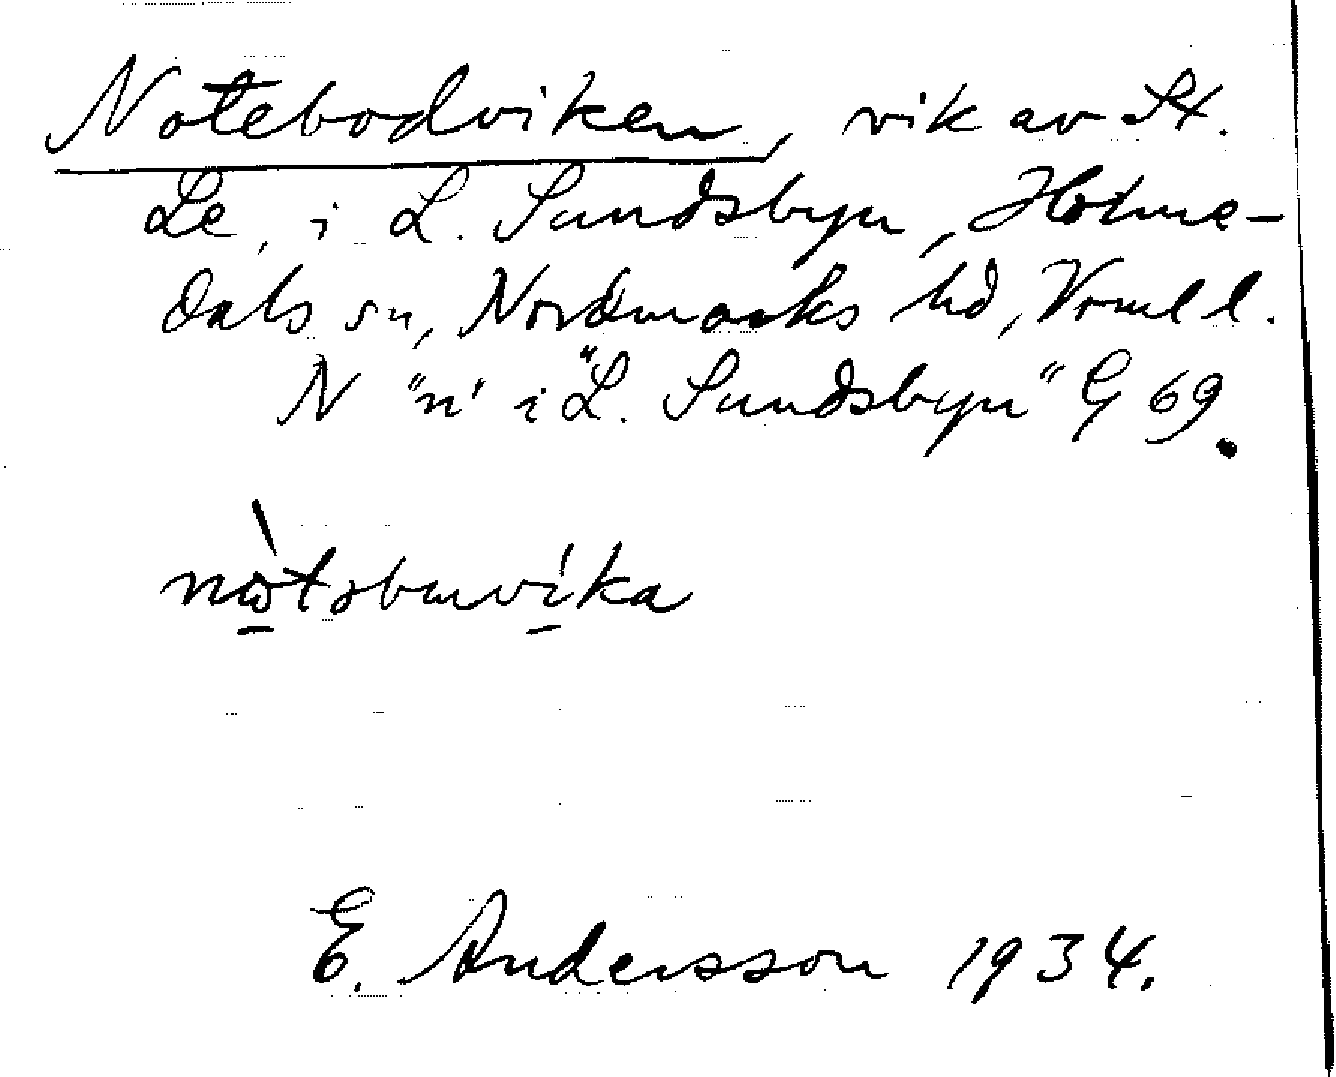 Notebodviken, vik av St.
Le, i L. Sundsbyn, Holme-
dals sn, Nordmarks hd, Vrml l.
N "n" i "L. Sundsbyn" G 69.
E. Andersson 1934.